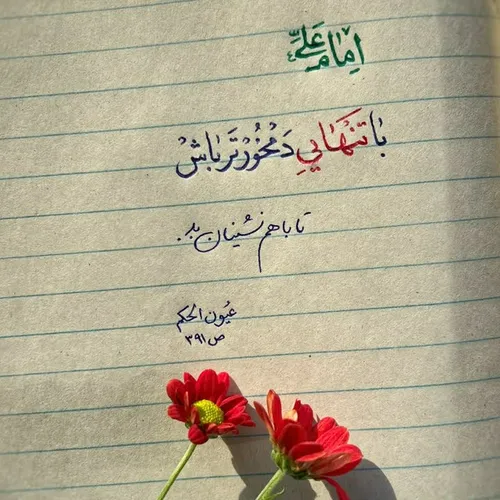 امام علی
با تنهایی دمخورتر باش
تا با هم‌نشینان بد.
عیون الحکم
ص ۳۹۱